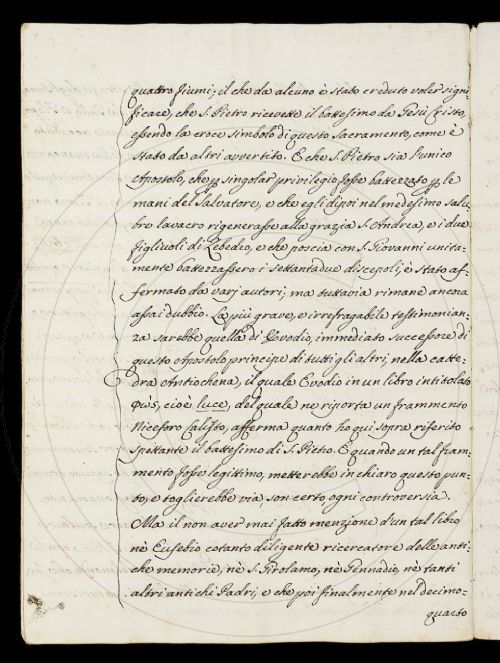 quattro fiumi; il che da alcuno è stato creduto voler signi-
ficare, che S. Pietro ricevette il battesimo da Gesù Cristo,
essendo la croce simbolo di questo Sacramento, come è
stato da altri avvertito. E che S. Pietro sia l'unico
Apostolo, che per singolar privilegio fosse battezzato per le
mani del Salvatore, e che egli dipoi nel medesimo salu-
bre lavacro rigenerasse alla grazia S. Andrea, e i due
figliuoli di Zebedeo, e che poscia con S. Giovanni unita-
mente battezzassero i settantadue discepoli; è stato af-
fermato da varj autori; ma tuttavia rimane ancora
assai dubbio. La più grave, e irrefragabile testimonian-
za sarebbe quella di Evodio, immediato successore di
questo Apostolo principe di tutti gli altri, nella catte-
dra Antiochena, il quale Evodio in un libro intitolato
φῶς, cioè luce, del quale ne riporta un frammento
Niceforo Calisto, afferma quanto ho qui sopra riferito
spettante il battesimo di S. Pietro. E quando un tal fram-
mento fosse legittimo, metterebbe in chiaro questo pun-
to, e toglierebbe via, son certo, ogni controversia.
Ma il non aver mai fatto menzione d'un tal libro
nè Eusebio cotanto diligente ricercatore delle anti-
che memorie, nè S. Girolamo, nè Gennadio, nè tanti
altri antichi Padri, e che poi finalmente nel decimo-
quarto